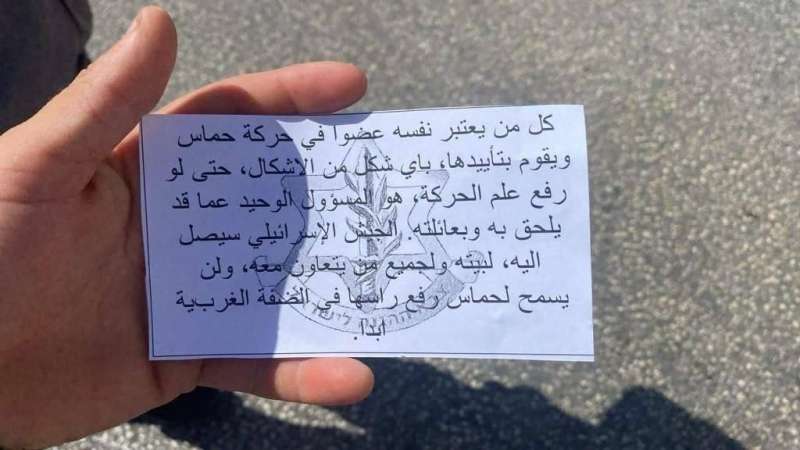 كل من يعتبر نفسه عضوا في حركة حماس
ويقوم بتأييدها، باي شكل من الاشكال، حتى لو
رفع علم الحركة، هو المسؤول الوحيد عما قد
يلحق به وبعائلته. الجيش الإسرائيلي سيصل
اليه، لبيته ولجميع من يتعاون معه، ولن
يسمح لحماس رفع راسها في الضفة الغربية
ابدا.